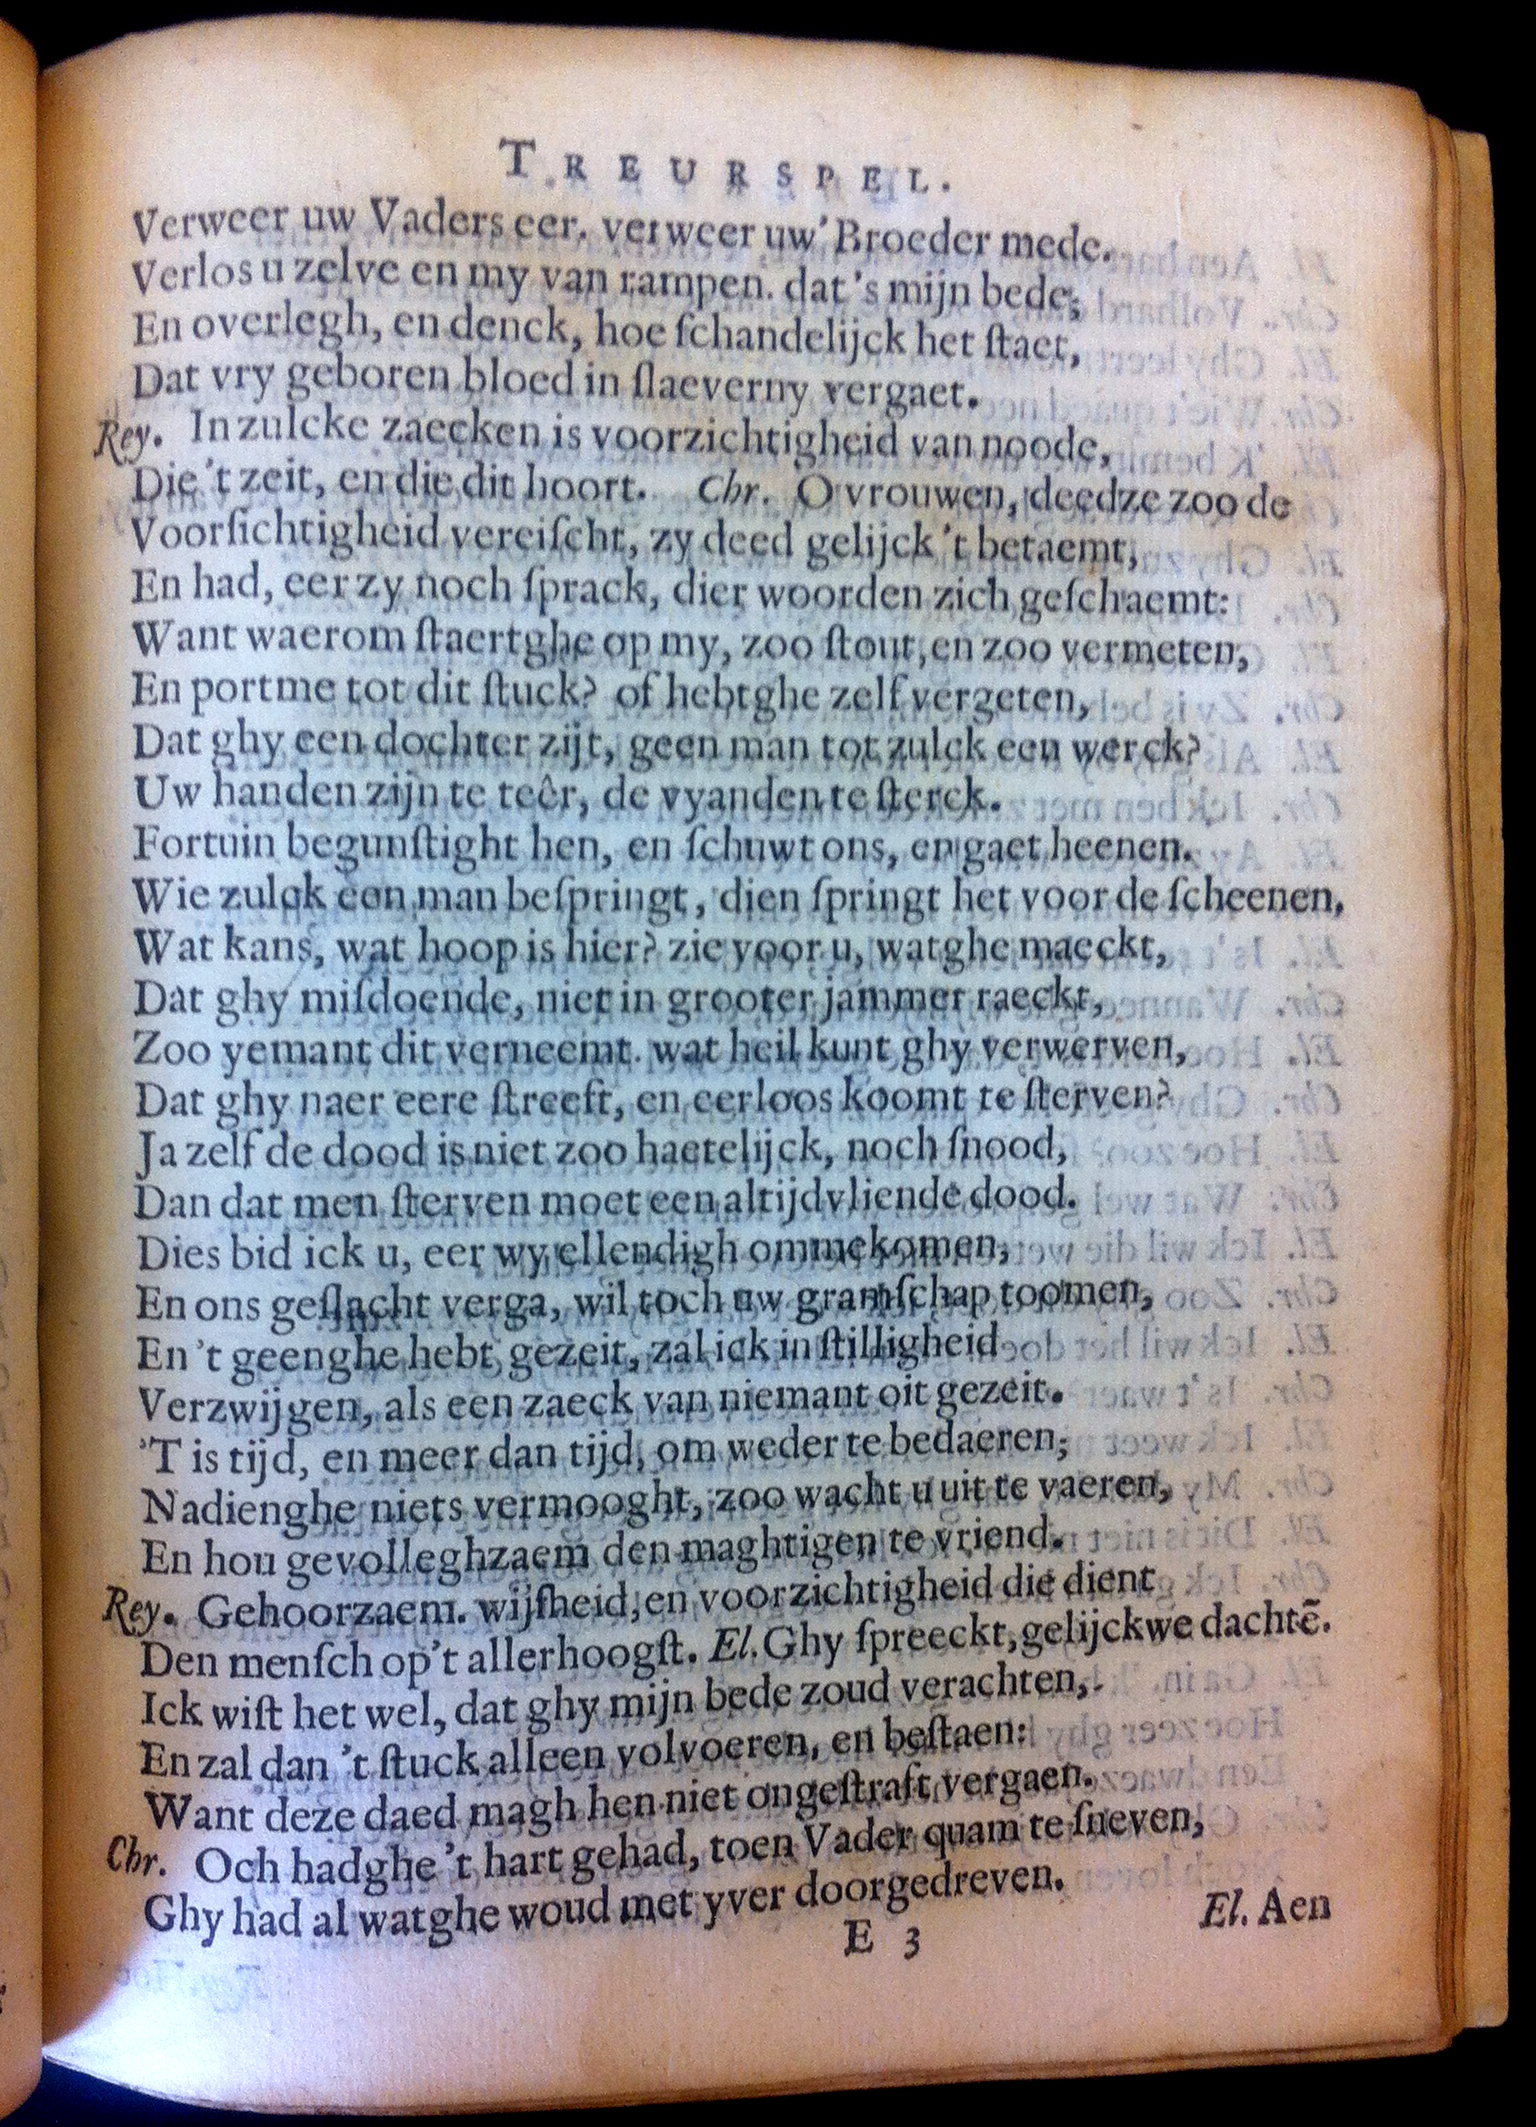 TREURSPEL.
Verweer uw Vaders eer. verweer uw' Broeder mede.
Verlos u zelve en my van rampen. dat 's mijn bede;
En overlegh, en denck, hoe ſchandelijck het ſtaet,
Dat vry geboren bloed in ſlaeverny vergaet.
Rey. In zulcke zaecken is voorzichtigheid van noode,
Die 't zeit, en die dit hoort. Chr. O vrouwen, deedze zoo de
Voorſichtigheid vereiſcht, zy deed gelijck 't betaemt,
En had, eer zy noch ſprack, dier woorden zich geſchaemt:
Want waerom ſtaertghe op my, zoo ſtout, en zoo vermeten,
En port me tot dit ſtuck? of hebtghe zelf vergeten,
Dat ghy een dochter zijt, geen man tot zulck een werck?
Uw handen zijn te teêr, de vyanden te ſterck.
Fortuin begunſtight hen, en ſchuwt ons, en gaet heenen.
Wie zulck een man beſpringt, dien ſpringt het voor de ſcheenen,
Wat kans, wat hoop is hier? zie voor u, watghe maeckt,
Dat ghy miſdoende, niet in grooter jammer raeckt,
Zoo yemant dit verneemt. wat heil kunt ghy verwerven,
Dat ghy naer eere ſtreeft, en eerloos koomt te ſterven?
Ja zelf de dood is niet zoo haetelijck, noch ſnood,
Dan dat men ſterven moet een altijdvliende dood.
Dies bid ick u, eer wy ellendigh ommekomen,
En ons geſlacht verga, wil toch uw gramſchap toomen,
En 't geenghe hebt gezeit, zal ick in ſtilligheid
Verzwijgen, als een zaeck van niemant oit gezeit.
'T is tijd, en meer dan tijd, om weder te bedaeren;
Nadienghe niets vermooght, zoo wacht u uit te vaeren,
En hou gevolleghzaem den maghtigen te vriend.
Rey. Gehoorzaem. wijſheid, en voorzichtigheid die dient
Den menſch op 't allerhoogſt. El. Ghy ſpreeckt, gelijck we dachtē.
Ick wiſt het wel, dat ghy mijn bede zoud verachten,
En zal dan 't ſtuck alleen volvoeren, en beſtaen:
Want deze daed magh hen niet ongeſtraft vergaen.
Chr. Och hadghe 't hart gehad, toen Vader quam te ſneven,
Ghy had al watghe woud met yver doorgedreven.
E 3
El. Aen